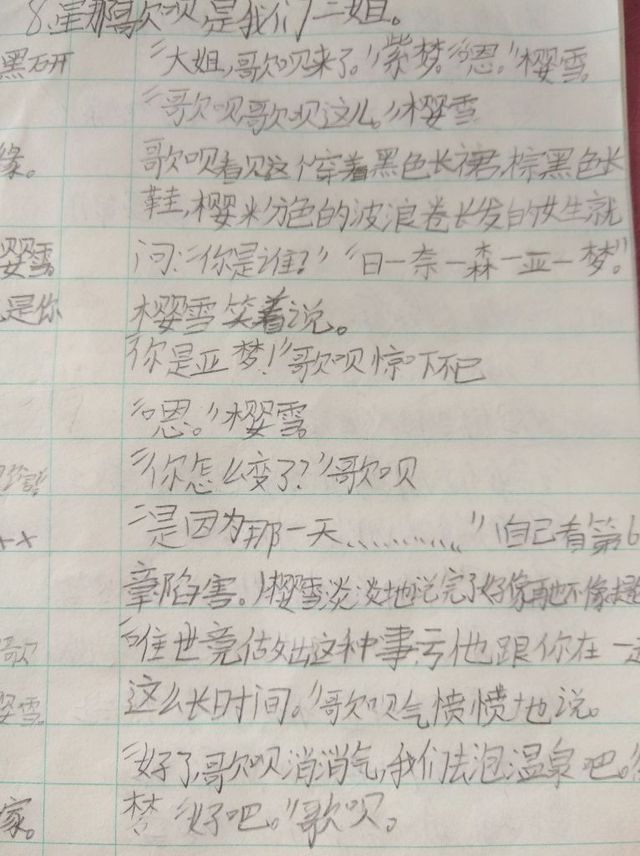 8.星那歌呗是我们三姐。
黑研
“大姐,歌呗来了。”紫梦。“恩。”樱雪。
“歌呗歌呗这儿。”樱雪
缘。
歌呗看见这个穿着黑色长裙,棕黑色长
鞋,樱米分色的波浪卷长发的女生就
樱雪
问:“你是谁?”“日一奈一森一亚一梦。”
是你
樱雪笑着说。
你是亚梦!”歌呗惊吓不已
“恩。”樱雪。
“你怎么变了?”歌呗
“是因为那一天…………”(自己看第6
××
章陷害。)樱雪淡淡地说完了好像再也不像提
“谁世竟做出这种事亏他跟你在一起
歌
这么长时间。”歌呗气愤愤地说。
樱雪。
“好了,歌呗消消气,我们去泡温泉吧。”
梦“好吧。”歌呗。
家。